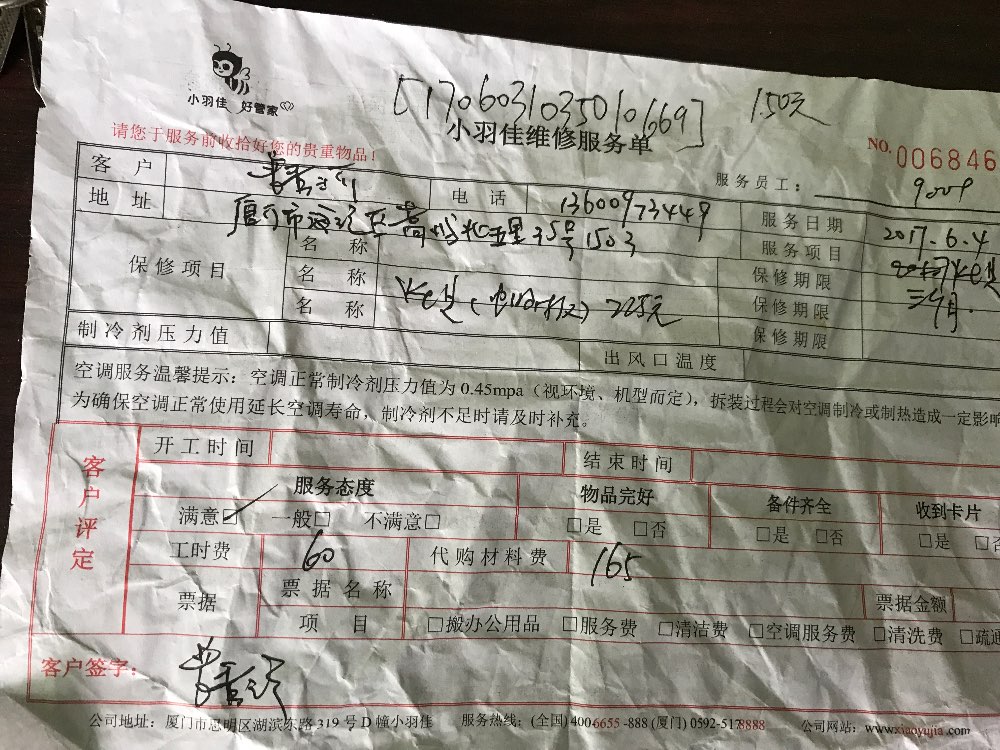 [1706031035010669] 150元
小羽佳 好管家
小羽佳维修服务单
请您于服务前收拾好您的贵重物品！
NO. 006846
服务员工： 9009
客 户 电 话 13600973449 服务日期 2017.6.4
地 址 35号1503 服务项目
保修项目 名 称 保修期限 三个月.
名 称 225元 保修期限
名 称 保修期限
制冷剂压力值 出风口温度
空调服务温馨提示：空调正常制冷剂压力值为 0.45mpa（视环境、机型而定），拆装过程会对空调制冷或制热造成一定影响
为确保空调正常使用延长空调寿命，制冷剂不足时请及时补充。
客户评定
开工时间 结束时间
服务态度 物品完好 备件齐全 收到卡片
满意☑ 一般□ 不满意□ □是 □否 □是 □否 □是 □否
工时费 60 代购材料费 165
票据 票据名称 票据金额
项 目 □搬办公用品 □服务费 □清洁费 □空调服务费 □清洗费 □疏通
客户签字：
公司地址：厦门市思明区湖滨东路 319 号 D 幢小羽佳 服务热线：(全国) 4006655-888 (厦门) 0592-5178888 公司网站：www.xiaoyujia.com